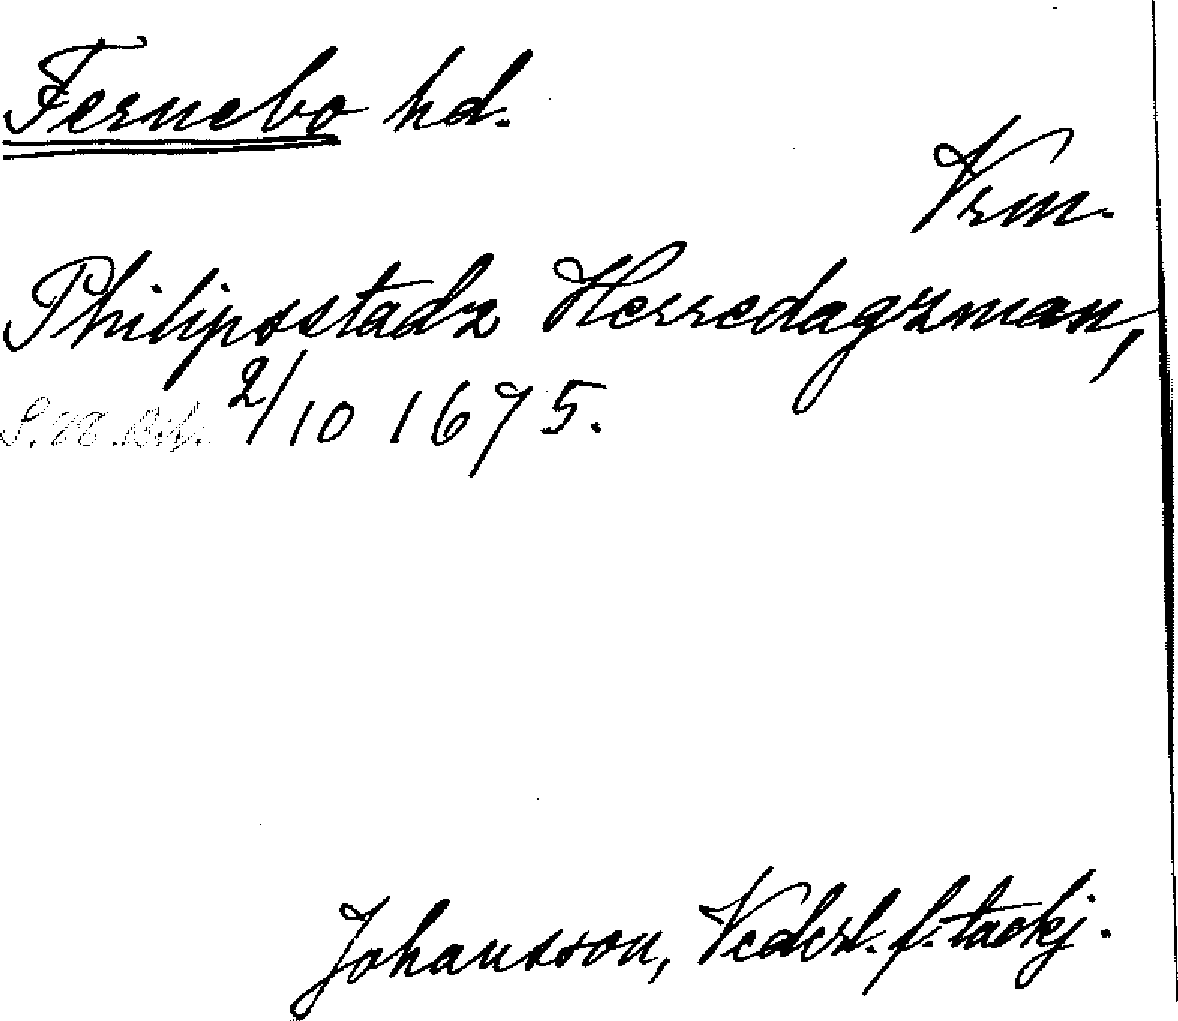 Fernebo hd.
Vrm.
Philipsstadz Herredagzman,
2/10 1675.
Johansson, Vederl. f. tackj.